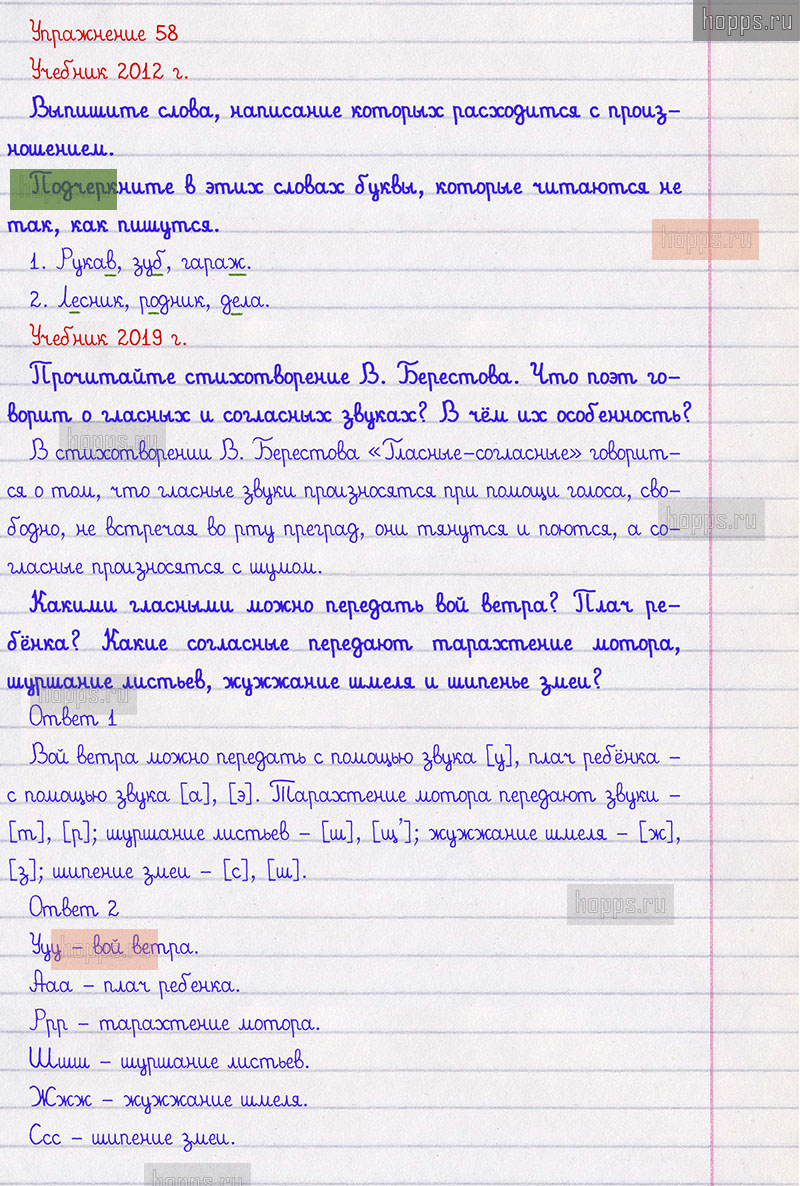 hopps.ru
Упражнение 58
Учебник 2012 г.
Выпишите слова, написание которых расходится с произ-
ношением.
Подчеркните в этих словах буквы, которые читаются не
так, как пишутся.
hopps.ru
1. Рукав, зуб, гараж.
2. Лесник, родник, дела.
Учебник 2019 г.
Прочитайте стихотворение В. Берестова. Что поэт го-
ворит о гласных и согласных звуках? В чём их особенность?
hopps.ru
В стихотворении В. Берестова «Гласные-согласные» говорит-
ся о том, что гласные звуки произносятся при помощи голоса, сво-
бодно, не встречая во рту преград, они тянутся и поются, а со-
hopps.ru
гласные произносятся с шумом.
Какими гласными можно передать вой ветра? Плач ре-
бёнка? Какие согласные передают тарахтение мотора,
шуршание листьев, жужжание шмеля и шипенье змеи?
hopps.ru
Ответ 1
Вой ветра можно передать с помощью звука [у], плач ребёнка –
с помощью звука [а], [э]. Тарахтение мотора передают звуки –
[т], [р]; шуршание листьев – [ш], [щ']; жужжание шмеля – [ж],
[з]; шипение змеи – [с], [ш].
Ответ 2
hopps.ru
Ууу – вой ветра.
Ааа – плач ребенка.
Ррр – тарахтение мотора.
Шшш – шуршание листьев.
Жжж – жужжание шмеля.
Ссс – шипение змеи.
hopps.ru